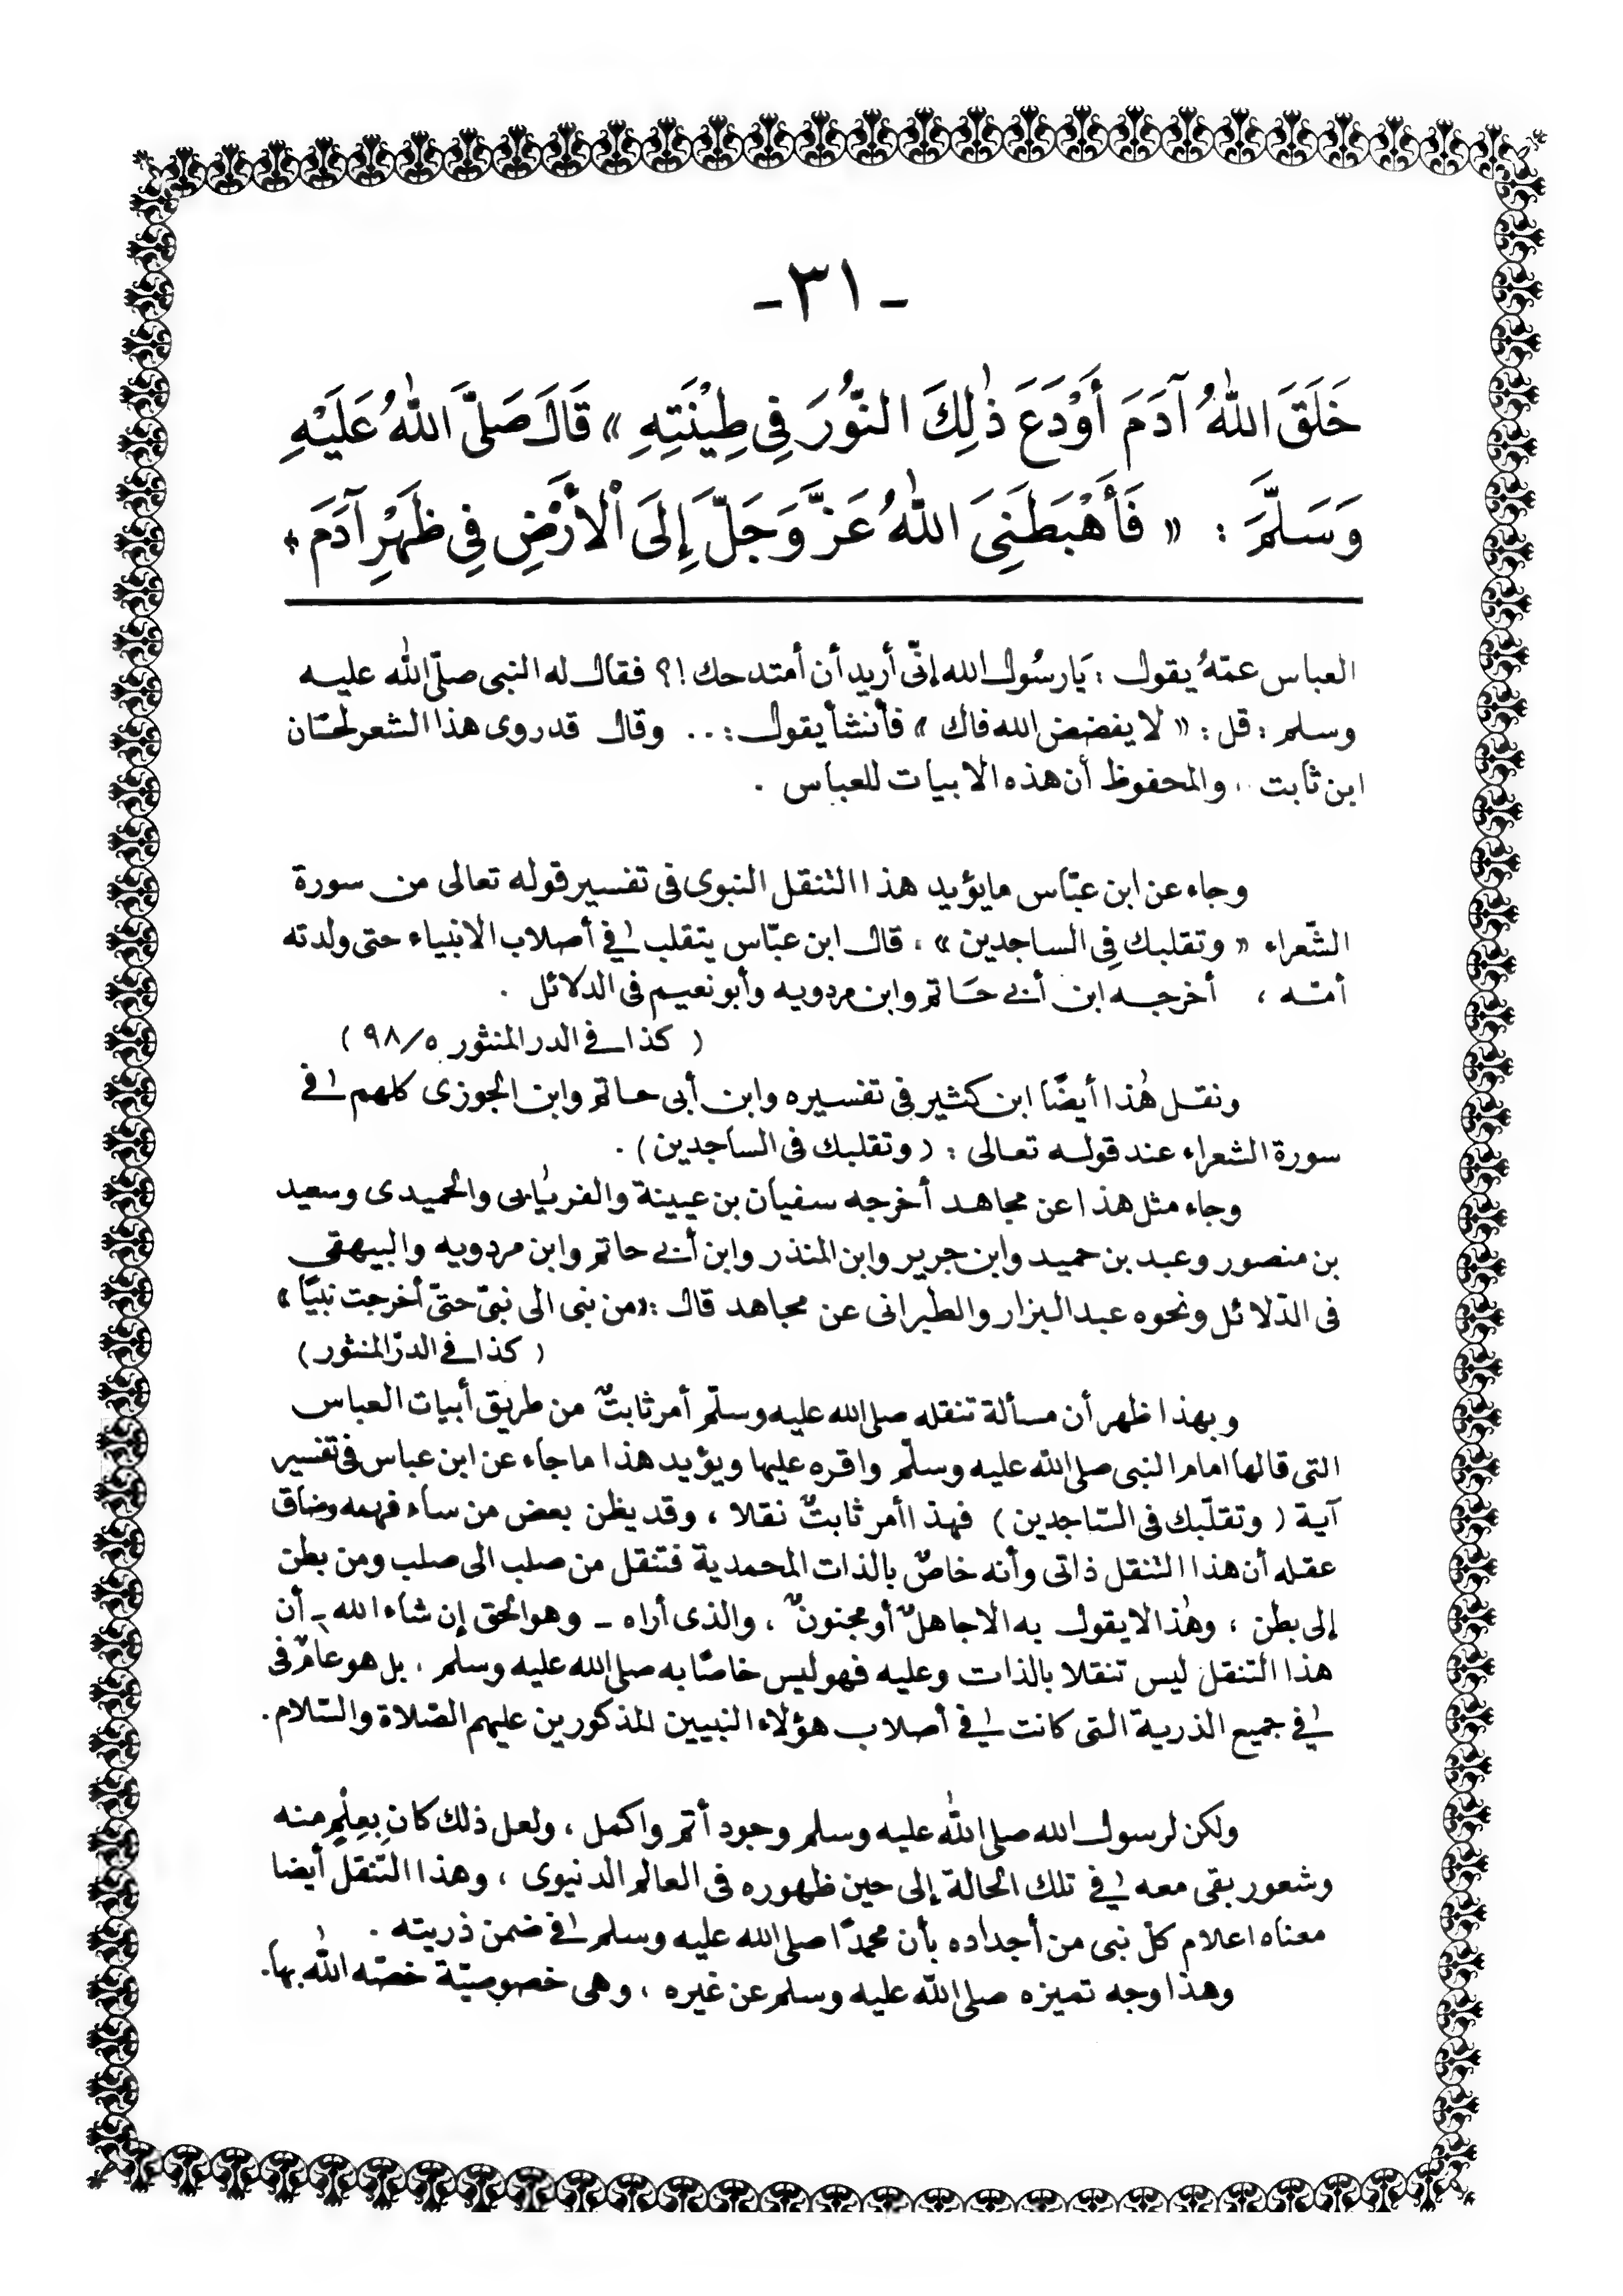 -٣١-
خَلَقَ اللهُ آدَمَ أَوْدَعَ ذٰلِكَ النُّورَ فِي طِيْنَتِهِ » قَالَ صَلَّى اللهُ عَلَيْهِ
وَسَلَّمَ : « فَأَهْبَطَنِيَ اللهُ عَزَّ وَجَلَّ إِلَى الْأَرْضِ فِي ظَهْرِ آدَمَ ،
العباس عمّهُ يقول : يَا رسُول الله إنّى أريد أن أمتدحك !؟ فقال له النبى صلّى الله عليه
وسلم : قل : « لا يفضض الله فاك » فأنشأ يقول : .. وقال قد روى هذا الشعر لحسّان
ابن ثابت .. والمحفوظ أن هذه الابيات للعباس .
وجاء عن ابن عبّاس ما يؤيد هذا التنقل النبوى فى تفسير قوله تعالى من سورة
الشّعراء « وتقلبك فِى الساجدين » ، قال ابن عبّاس يتقلب في أصلاب الانبياء حتى ولدته
أمّه ، أخرجه ابن أبي حَاتم وابن مردويه وأبو نعيم فى الدلائل .
( كذا في الدر المنثور ٩٨/٥ )
ونقل هٰذا أيضًا ابن كثير فى تفسيره وابن أبى حاتم وابن الجوزى كلهم في
سورة الشعراء عند قوله تعالى : ( وتقلبك فى الساجدين ) .
وجاء مثل هذا عن مجاهد أخرجه سفيان بن عيينة والفريابى والحميدى وسعيد
بن منصور وعبد بن حميد وابن جرير وابن المنذر وابن أبي حاتم وابن مردويه والبيهقي
فى الدّلائل ونحوه عبد البزار والطبرانى عن مجاهد قال : « من نبى الى نبىّ حتىّ أخرجت نبيّا »
( كذا في الدرّ المنثور )
وبهذا ظهر أن مسألة تنقله صلى الله عليه وسلّم أمر ثابتٌ من طريق أبيات العباس
التى قالها امام النبى صلى الله عليه وسلّم واقره عليها ويؤيد هذا ما جاء عن ابن عباس فى تفسير
آية ( وتقلّبك فى السّاجدين ) فهذا أمر ثابتٌ نقلا ، وقد يظن بعض من ساء فهمه وضاق
عقله أن هذا التنقل ذاتى وأنه خاصٌ بالذات المحمدية فتنقل من صلب الى صلب ومن بطن
إلى بطن ، وهٰذا لا يقول به الا جاهلٌ أو مجنونٌ ، والذى أراه - وهو الحق إن شاء الله - أن
هذا التنقل ليس تنقلا بالذات وعليه فهو ليس خاصًا به صلى الله عليه وسلم ، بل هو عامٌ فى
في جميع الذرية التى كانت في أصلاب هؤلاء النبيين المذكورين عليهم الصّلاة والسّلام .
ولكن لرسول الله صلى الله عليه وسلم وجود أتم واكمل ، ولعل ذلك كان بِعِلْمٍ منه
وشعور بقى معه في تلك الحالة إلى حين ظهوره فى العالم الدنيوى ، وهذا التّنقل أيضا
معناه اعلام كلّ نبى من أجداده بأن محمدًا صلى الله عليه وسلم في ضمن ذريته .
وهذا وجه تميزه صلى الله عليه وسلم عن غيره ، وهى خصوصيّة خصّه اللّٰه بها .